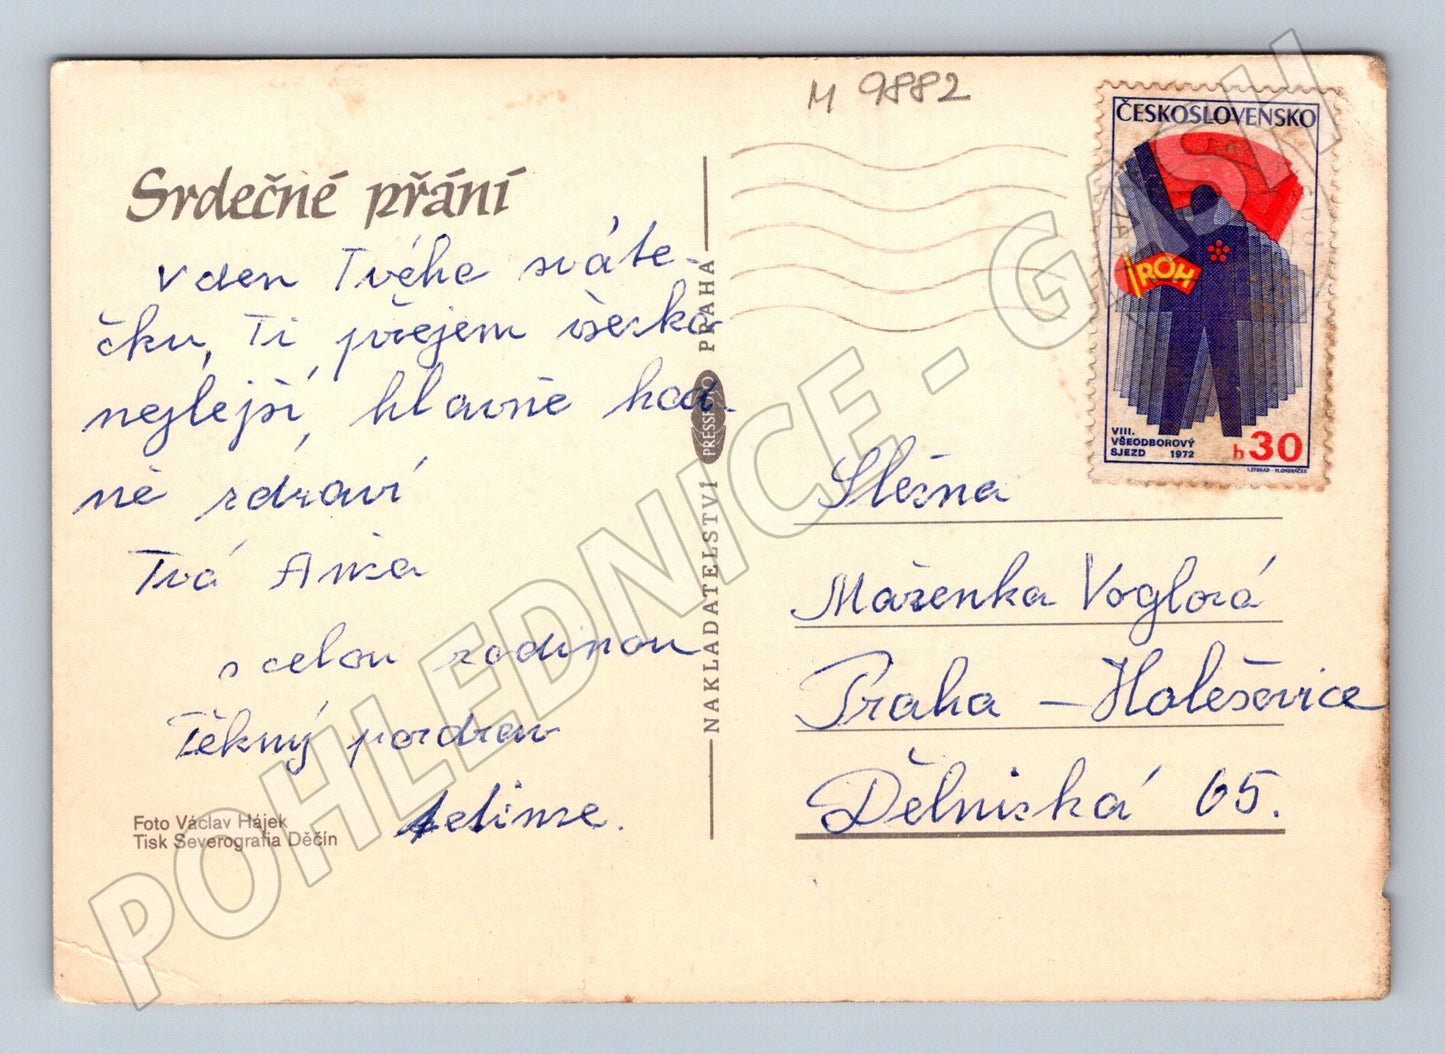 M 9882
ČESKOSLOVENSKO
ROH
VIII.
VŠEODBOROVÝ
SJEZD 1972
h 30
Srdečné přání
V den Tvého sváte-
čku, Ti přejem všecko
nejlejší, hlavně hod-
ně zdraví
Tvá
s celou rodinou
Pěkný pozdrav
Foto Václav Hájek
Tisk Severografia Děčín
NAKLADATELSTVÍ PRESSFOTO PRAHA
Slečna
Mařenka Voglová
Praha – Holešovice
Dělnická 65.
POHLEDNICE - GASH